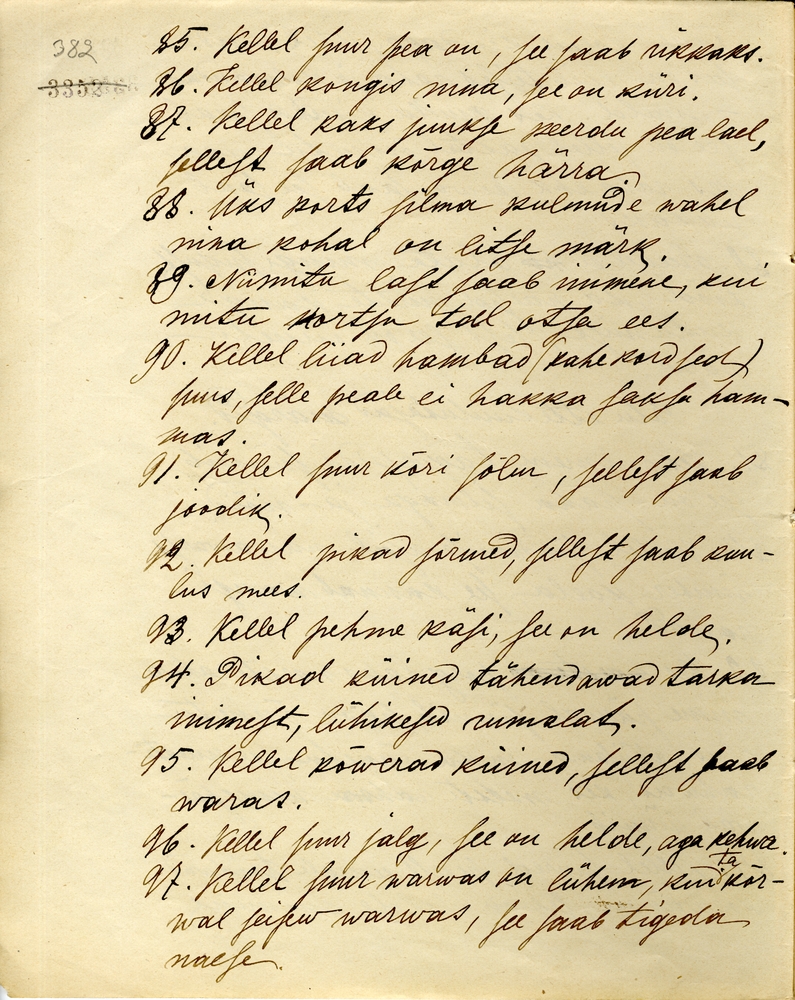 382
3352
85. Kellel suur pea on, see saab rikkaks.
86. Kellel kongis nina, see on kiiri.
87. Kellel kaks juukse keerdu pea lael,
sellest saab kõrge härra.
88. Üks korts silma kulmude wahel
nina kohal on litse märk.
89. Nimitu last saab inimene, kui
mitu kortsu tal otsa ees.
90. Kellel liiad hambad (kahekordsed)
suus, selle peale ei hakka saksa ham-
mas.
91. Kellel suur kõri sõlm, sellest saab
joodik.
92. Kellel pikad sõrmed, sellest saab kuu-
lus mees.
93. Kellel pehme käsi, see on helde.
94. Pikad küined tähendawad tarka
inimest, lühikesed rumalat.
95. Kellel kõwerad küined, sellest saab
waras.
96. Kellel suur jalg, see on helde, aga kehwa.
97. Kellel suur warwas on lühem, kui ta kõr-
wal seisew warwas, see saab tigeda
naese.